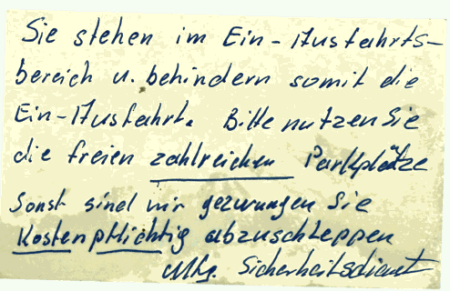 Sie stehen im Ein-Ausfahrts-
bereich u. behindern somit die
Ein-Ausfahrt. Bitte nutzen Sie
die freien zahlreichen Parkplätze
Sonst sind wir gezwungen Sie
Kostenpflichtig abzuschleppen
Mfg. Sicherheitsdienst